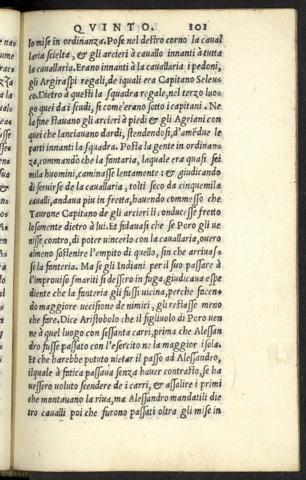 QVINTO. 101
lo mise in ordinanza. Pose nel destro corno la caual
laria scielta, & gli arcieri à cauallo innanti à tutta
la cauallaria. Erano innanti à la cauallaria i pedoni,
gli Argiraspi regali, de iquali era Capitano Seleu-
co. Dietro a questi la squadra regale, nel terzo luo-
go quei da i scudi, si com'erano sotto i capitani. Ne
la fine stauano gli arcieri à piedi & gli Agriani con
quei che lanciauano dardi, stendendosi, d'amedue le
parti innanti la squadra. Posta la gente in ordinan-
za, commandò che la fantaria, laquale era quasi sei
mila huomini, caminasse lentamente: & giudicando
di seruirse de la cauallaria, tolti seco da cinquemila
caualli, andaua piu in fretta, hauendo commesso che
Taurone Capitano de gli arcieri li conducesse fretto
losamente dietro à lui. Et fidauasi che se Poro gli ue
nisse contro, di poter uincerlo con la cauallaria, ouero
almeno sostenere l'empito di quello, fin che arriuas-
se la fanteria. Ma se gli Indiani per il suo passare à
l'improuiso smariti si dessero in fuga, giudicaua espe
diente che la fanteria gli fussi uicina, perche facen-
do maggiore uccisione de nimici, gli restasse meno
che fare. Dice Aristobolo che il figliuolo di Poro uen
ne à quel luogo con sessanta carri, prima che Alessan
dro fusse passato con l'esercito ne la maggior isola.
Et che harebbe potuto uietar il passo ad Alessandro,
ilquale à fatica passaua senza hauer contrasto, se ha
uessero uoluto scendere de i carri, & assalire i primi
che montauano la riua, ma Alessandro mandatili die
tro caualli poi che furono passati oltra gli mise in